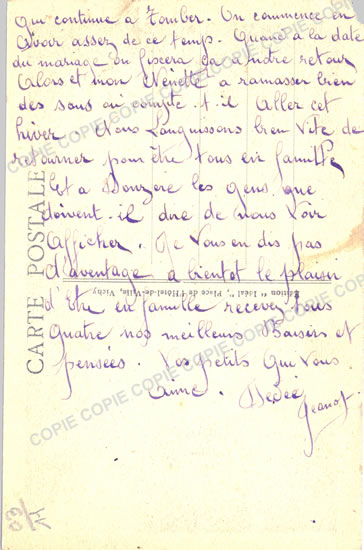 que continue a tomber. On commence en
avoir assez de ce temps. Quand à la date
du mariage on fixera ça a notre retour
Alors et mon Nénette a ramasser bien
des sous ou compte. t. il Aller cet
hiver. Nous Languissons bien vite de
retourner pour être tous en famille
Et a Donzère les gens que
doivent. il dire de nous voir
Afficher. Je vous en dis pas
d'aventage a bientot le plaisir
d'Etre en famille recevez vous
quatre nos meilleurs Baisers et
pensées. Vos petits qui vous
Aime. Dédée
Jeanot
CARTE POSTALE
Edition "Idéal" Place de l'Hôtel-de-Ville, Vichy
COPIE COPIE COPIE COPIE COPIE